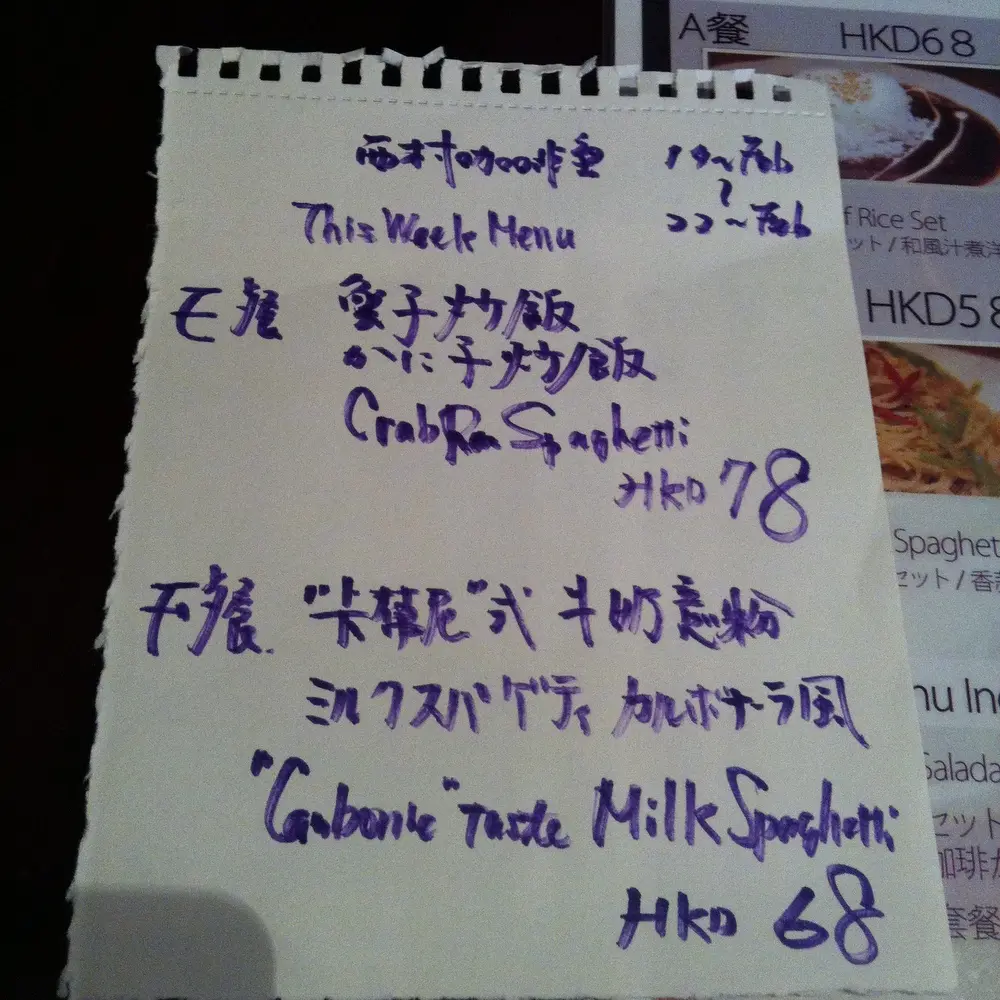 A餐 HKD68
西村咖啡室 19~Feb
~
This Week Menu 22~Feb
E餐 蟹子炒飯
かに子炒飯
Crab Spaghetti
HKD 78
F餐 "卡尼"式 牛奶意粉
ミルクスパゲティ カルボナーラ風
Taste Milk Spaghetti
HKD 68
f Rice Set
ット / 和風汁煮洋
HKD58
Spaghet
セット / 香
nu In
Salada
セット
套餐